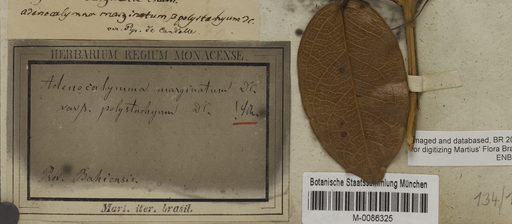 adenocalymna marginatum β polystachyum DC.
HERBARIUM REGIUM MONACENSE.
Adenocalymma marginatum DC.
var β. polystachyum DC.
Prov. Bahiensis.
Mart. iter. brasil.
Imaged and databased, BR 20
for digitizing Martius' Flora Bra
ENB
Botanische Staatssammlung München
M-0086325
134/1